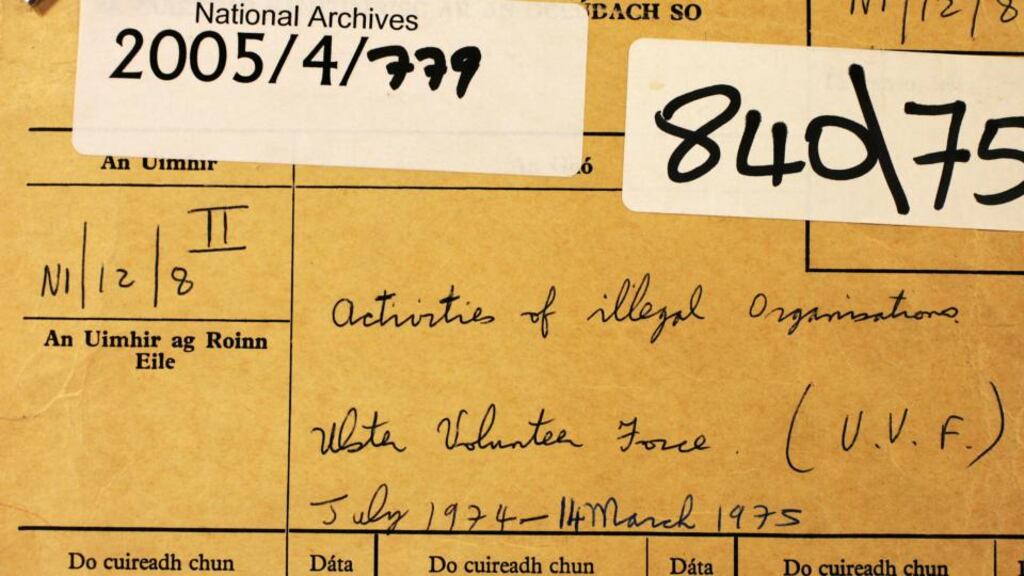 National Archives
2005/4/779
ḊBACH SO
NI/12/8
840\75
An Uimhir
NI/12/8 II
An Uimhir ag Roinn
Eile
Activities of illegal Organisations.
Ulster Volunteer Force. (U.V.F.)
July 1974 – 14 March 1975
Do cuireadh chun
Dáta
Do cuireadh chun
Dáta
Do cuireadh chun